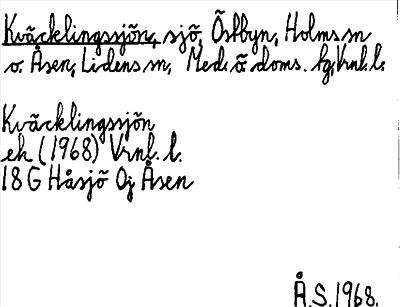 Kväcklingssjön, sjö, Östbyn, Holms sn
o. Åsen, Lidens sn, Med. ö. doms. hg, Vrnl. l.
Kväcklingssjön
ek (1968) Vrnl. l.
18 G Håsjö Oj Åsen
Å.S. 1968.